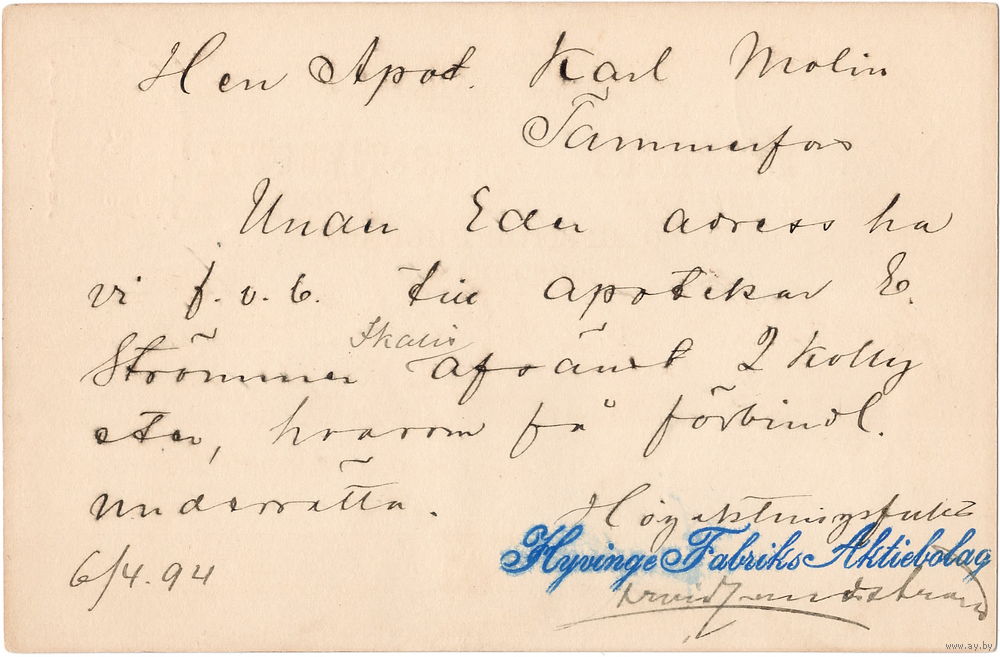 Herr Apot. Karl Molin
Tammerfors
Under Eder adress ha
vi f.v.b. till apotekar E.
Strömmer afsändt 2 kolly
eter, hvarom få förbindl.
underrätta.
Högaktningsfullt
Hyvinge Fabriks Aktiebolag
6/4.94
www.ay.by